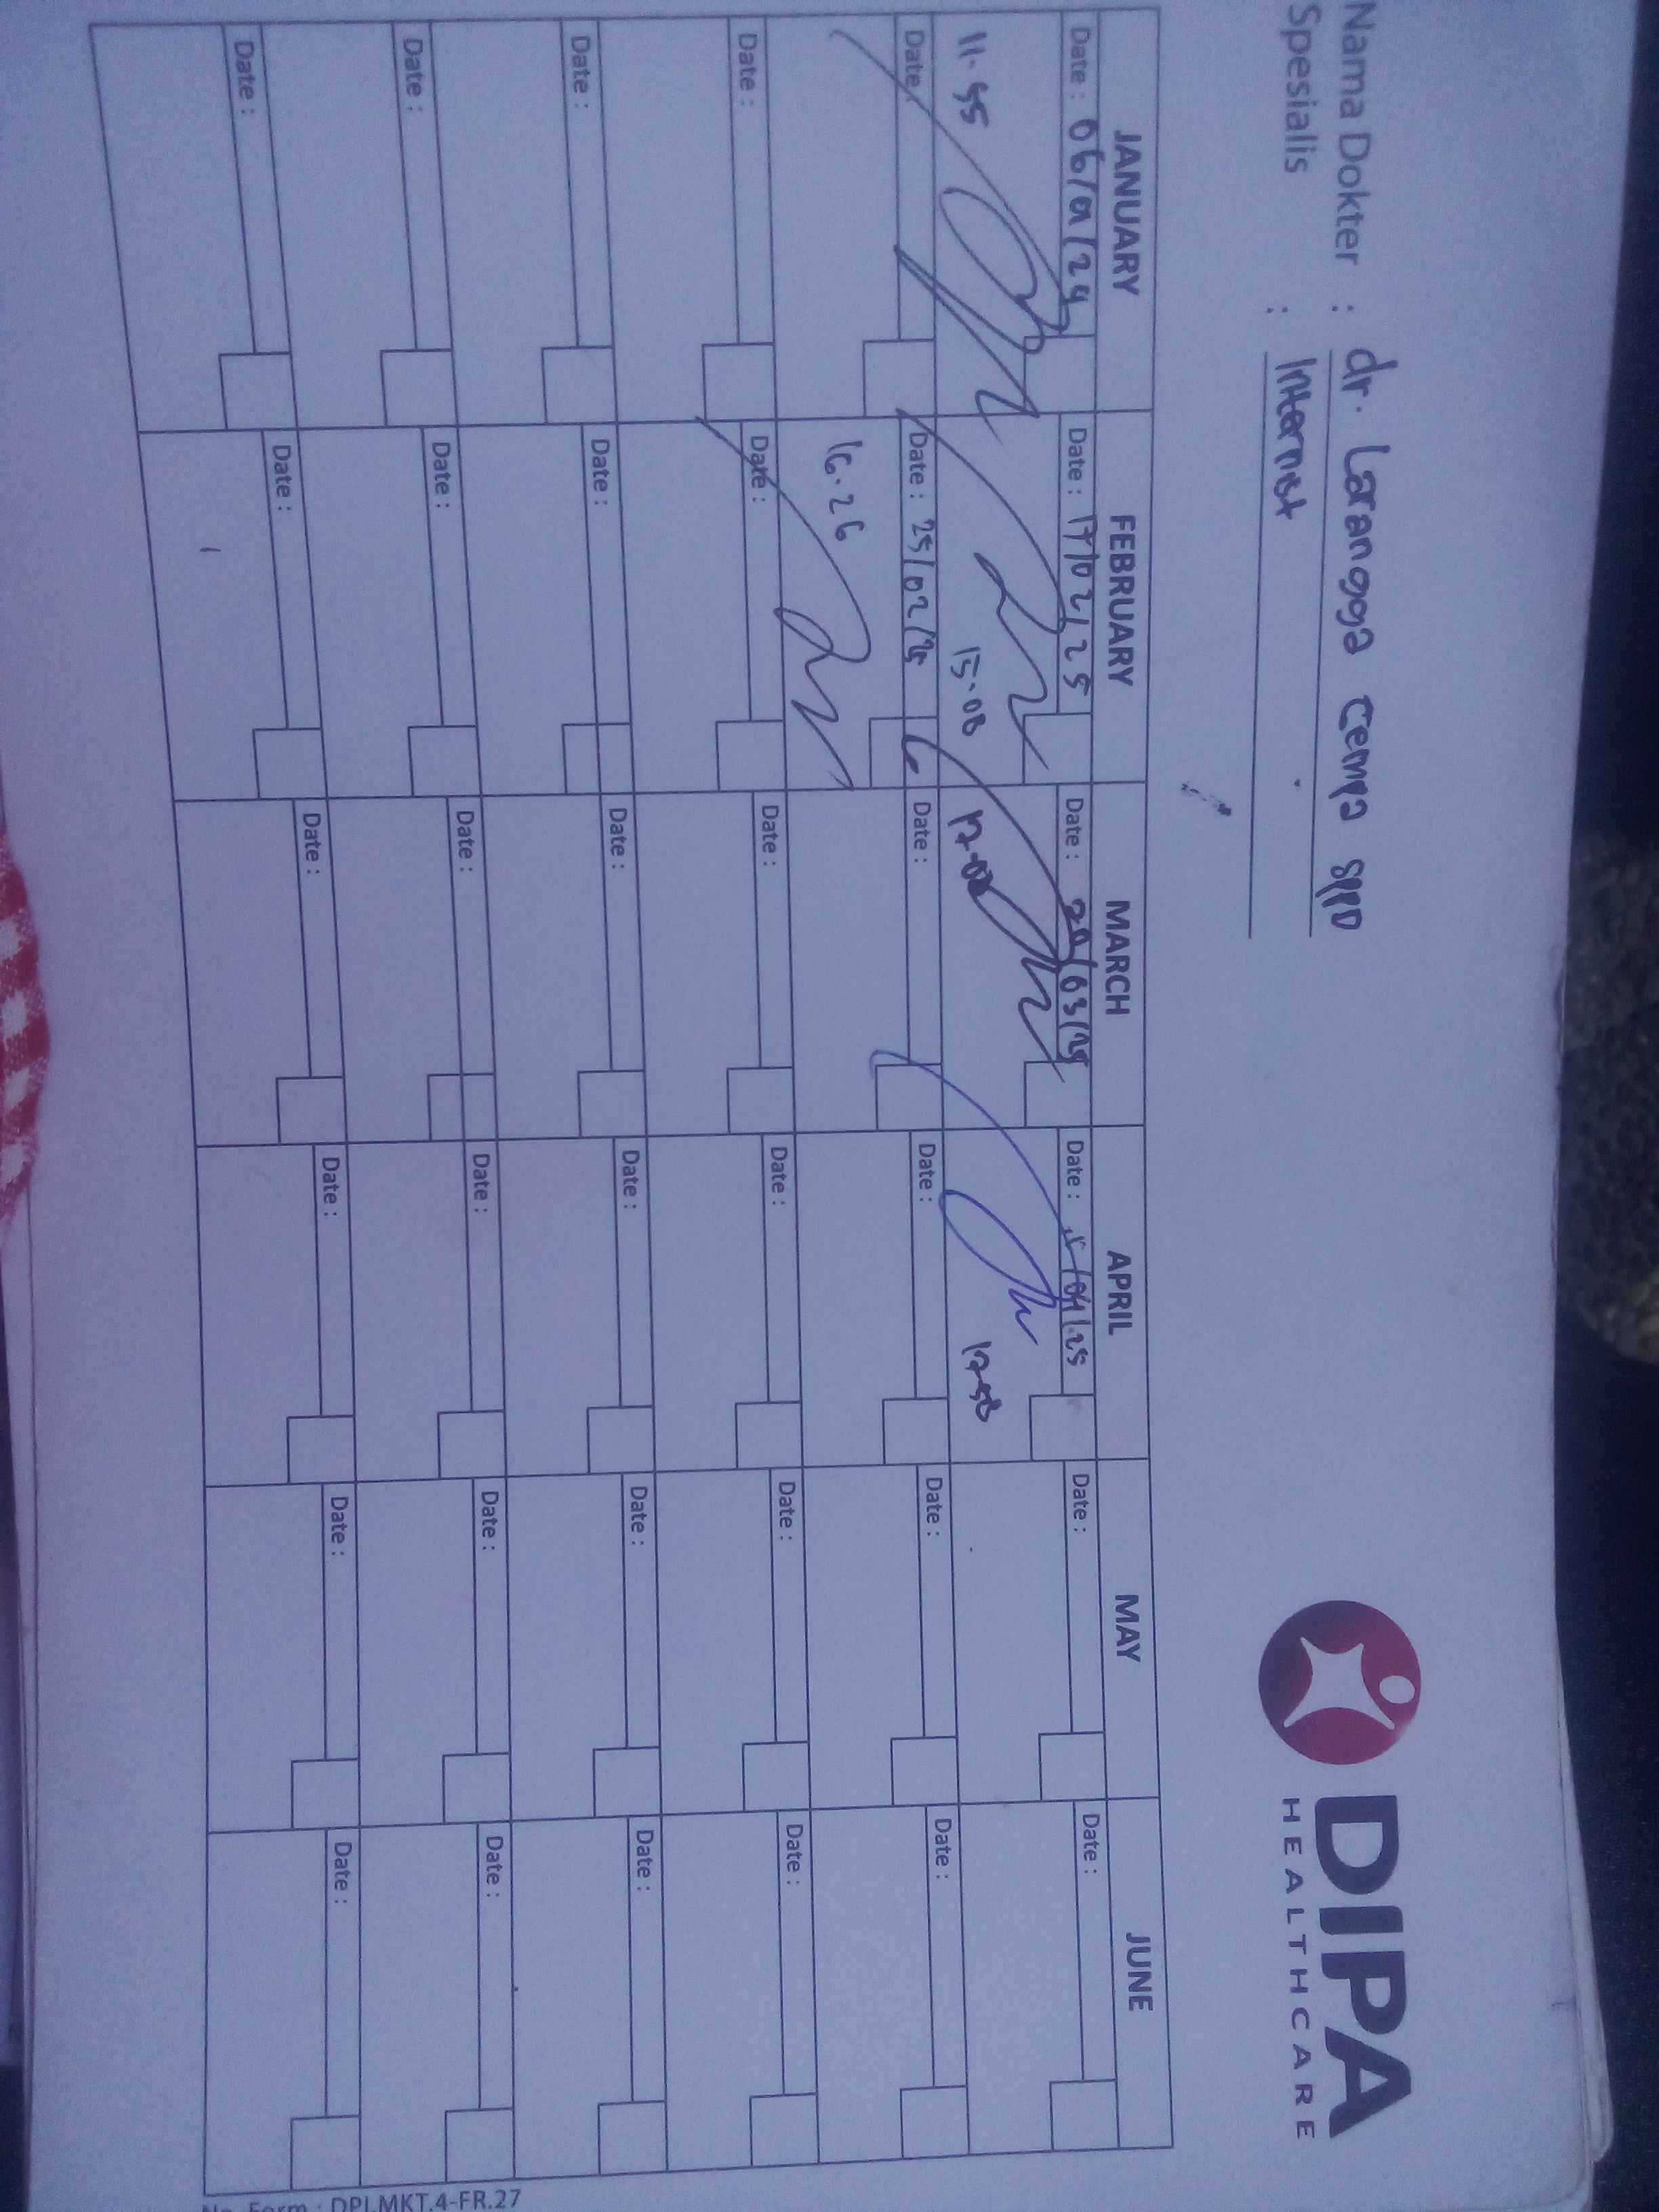 Nama Dokter : dr. Larangga Cempa SpPD
Spesialis : Internist
DIPA
HEALTHCARE
JANUARY FEBRUARY MARCH APRIL MAY JUNE
Date : 06/01/24 Date : 17/02/25 Date : 20/03/25 Date : /04/25 Date : Date :
11.55 15.08 17.08 17.58
Date : Date : 25/02/25 Date : Date : Date : Date :
16.26
Date : Date : Date : Date : Date : Date :
Date : Date : Date : Date : Date : Date :
Date : Date : Date : Date : Date : Date :
Date : Date : Date : Date : Date : Date :
No. Form : DPLMKT.4-FR.27